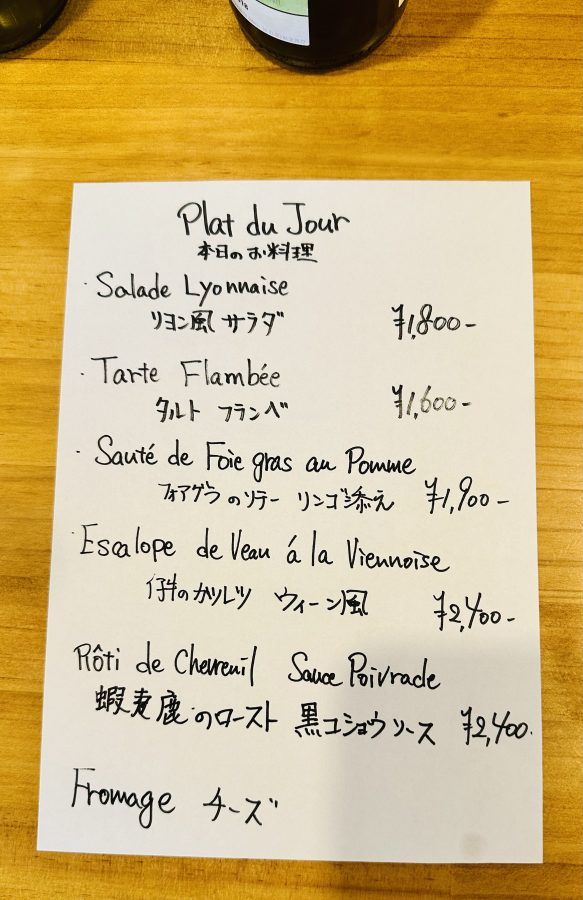 Plat du Jour
本日のお料理
・Salade Lyonnaise
リヨン風 サラダ ¥1,800-
・Tarte Flambée
タルト フランベ ¥1,600-
・Sauté de Foie gras au Pomme
フォアグラのソテー リンゴ添え ¥1,900-
・Escalope de Veau á la Viennoise
仔牛のカツレツ ウィーン風 ¥2,400-
Rôti de Chevreuil Sauce Poivrade
蝦夷鹿のロースト 黒コショウソース ¥2,400.
Fromage チーズ